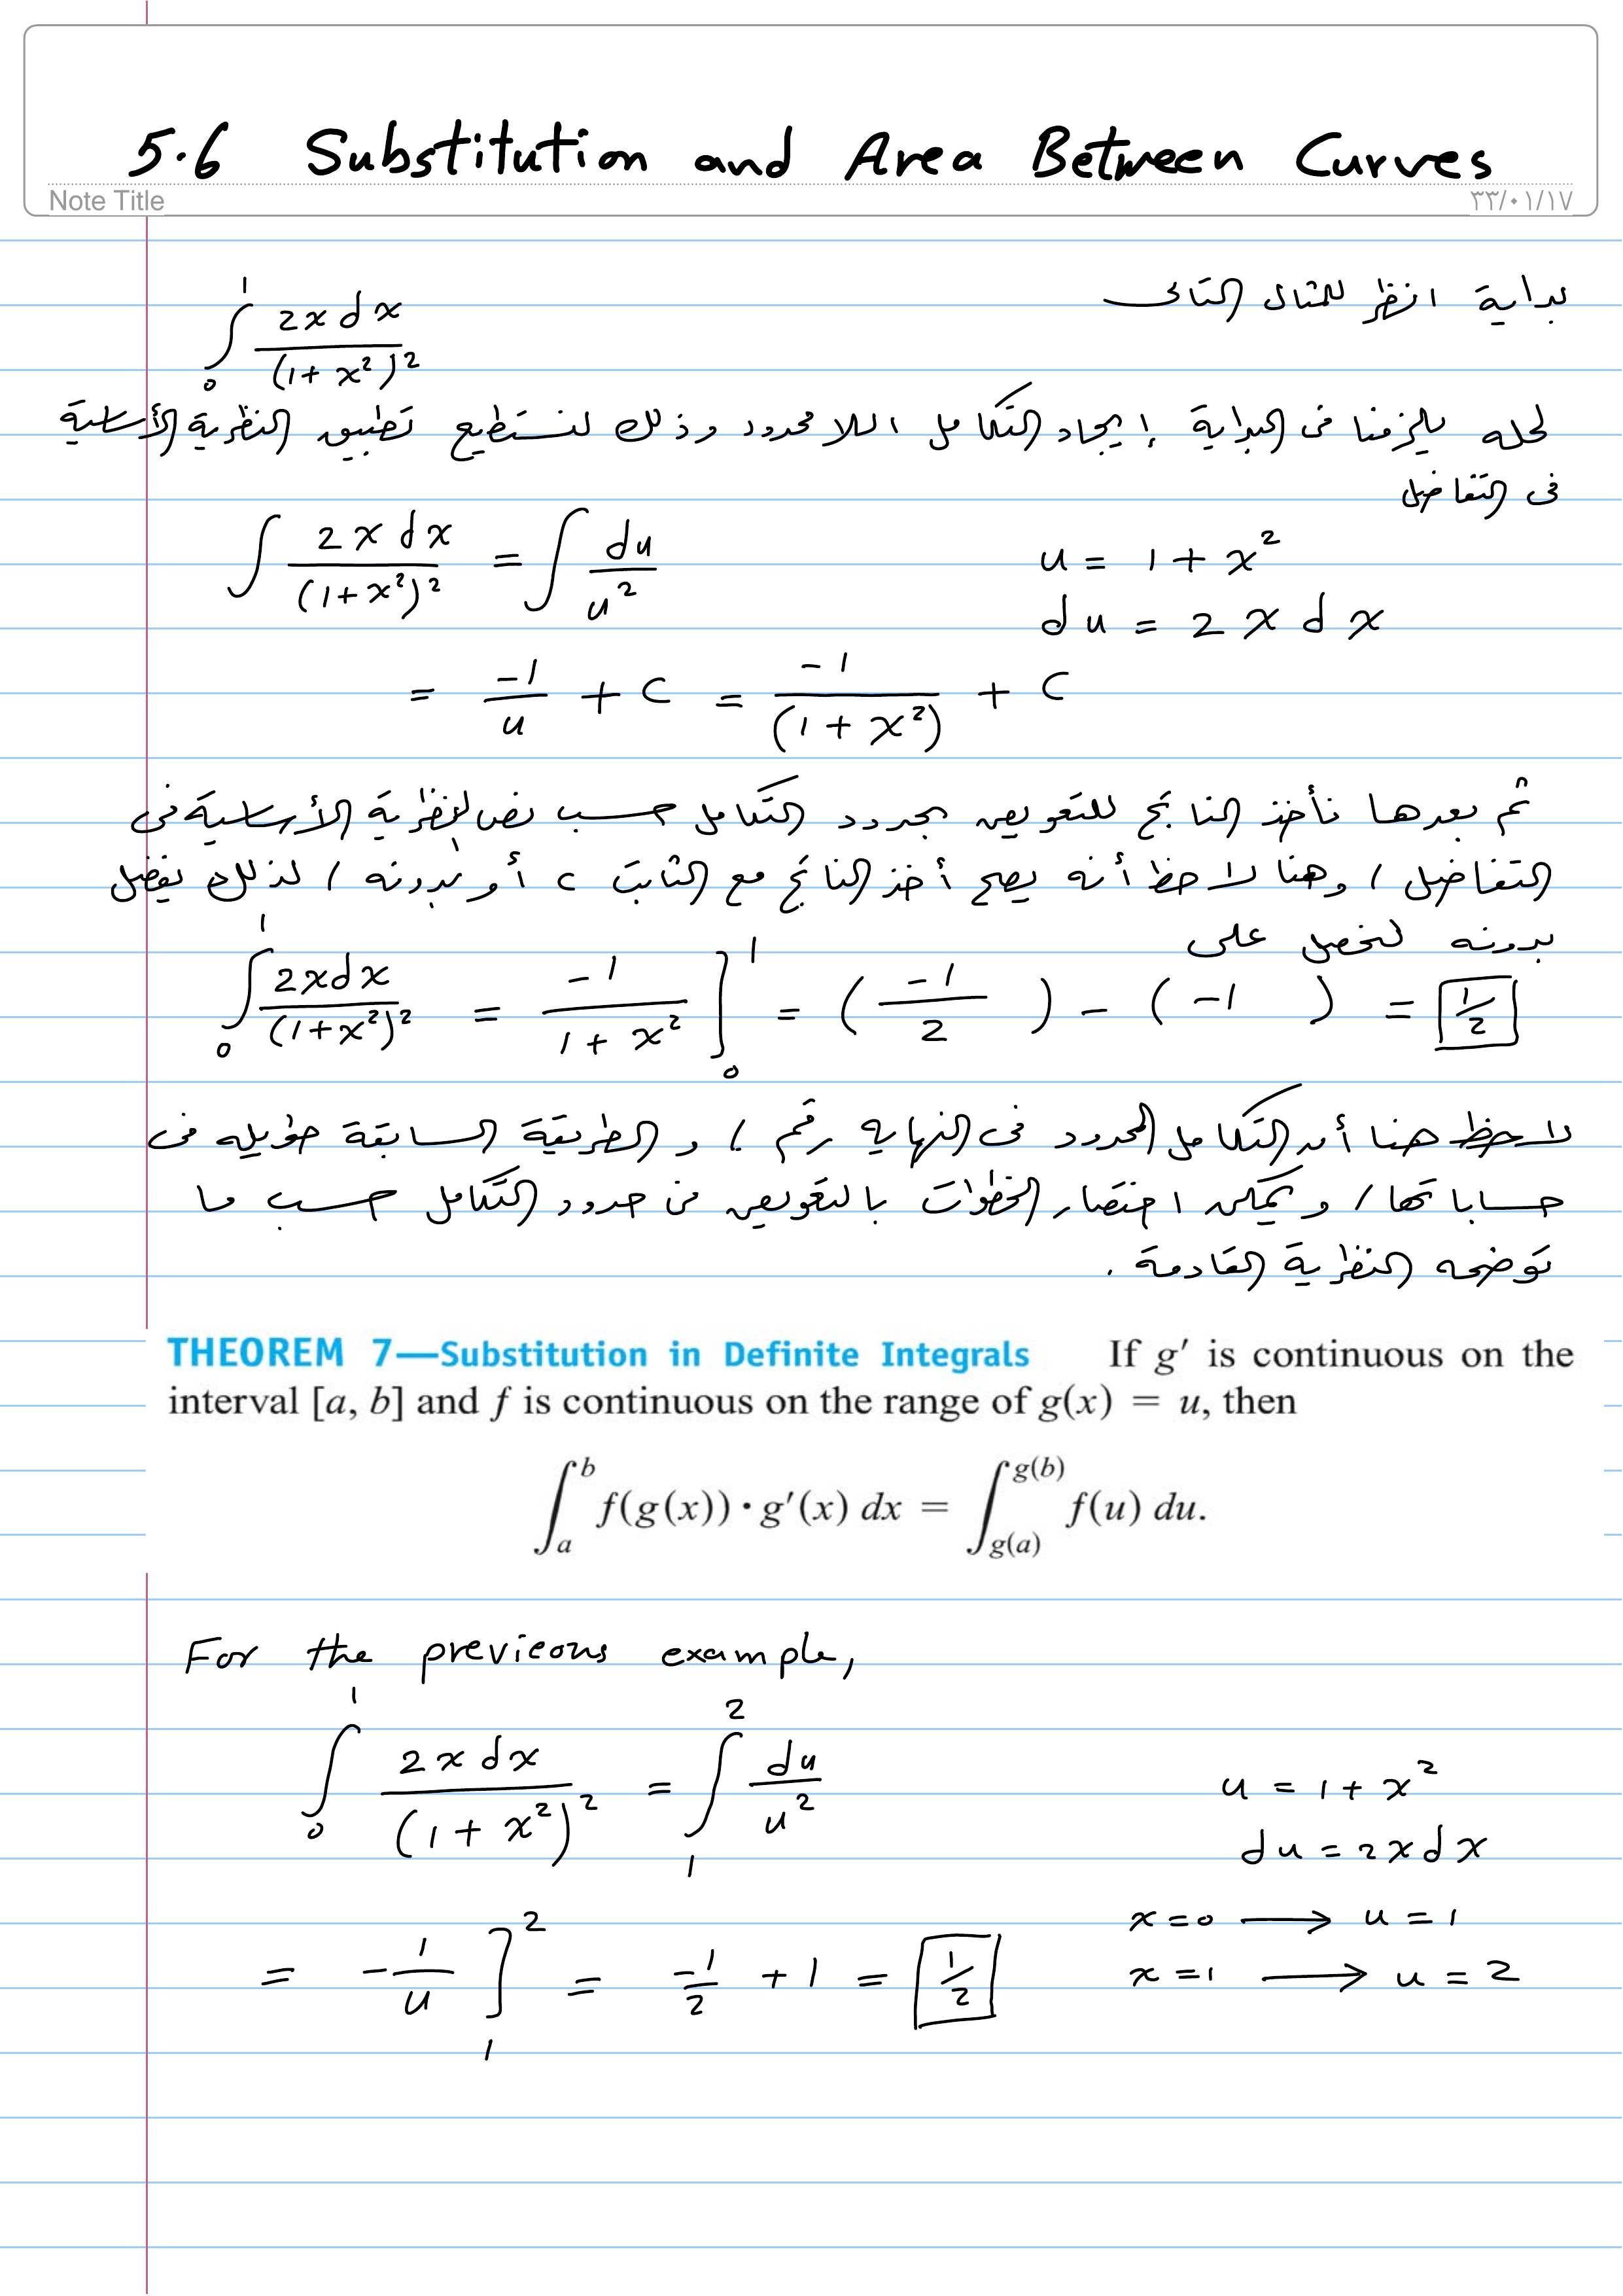 5.6 Substitution and Area Between Curves
Note Title
٣٣/٠١/١٧
بداية انظر للمثال التالى
∫₀¹ 2x dx / (1 + x²)²
لحله يلزمنا فى البداية إيجاد التكامل اللامحدود وذلك لنستطيع تطبيق النظرية الأساسية
فى التفاضل
∫ 2x dx / (1+x²)² = ∫ du / u²
u = 1 + x²
du = 2x dx
= -1/u + C = -1/(1 + x²) + C
ثم بعدها نأخذ الناتج للتعويض بحدود التكامل حسب نص النظرية الأساسية فى
التفاضل , وهنا لاحظ أنه يصح أخذ الناتج مع الثابت c أو بدونه , لذلك يفضل
بدونه لنحصل على
∫₀¹ 2x dx / (1+x²)² = -1/(1 + x²) ]₀¹ = (-1/2) - (-1) = 1/2
لاحظ هنا أن التكامل المحدود فى النهاية رقم , و الطريقة السابقة طويله فى
حساباتها , و يمكن اختصار الخطوات بالتعويض فى حدود التكامل حسب ما
توضحه النظرية القادمة .
THEOREM 7—Substitution in Definite Integrals If g′ is continuous on the
interval [a, b] and f is continuous on the range of g(x) = u, then
∫ₐᵇ f(g(x)) · g′(x) dx = ∫_{g(a)}^{g(b)} f(u) du.
For the previeous example,
∫₀¹ 2x dx / (1 + x²)² = ∫₁² du / u²
u = 1 + x²
du = 2x dx
x = 0 ⟶ u = 1
= -1/u ]₁² = -1/2 + 1 = 1/2
x = 1 ⟶ u = 2